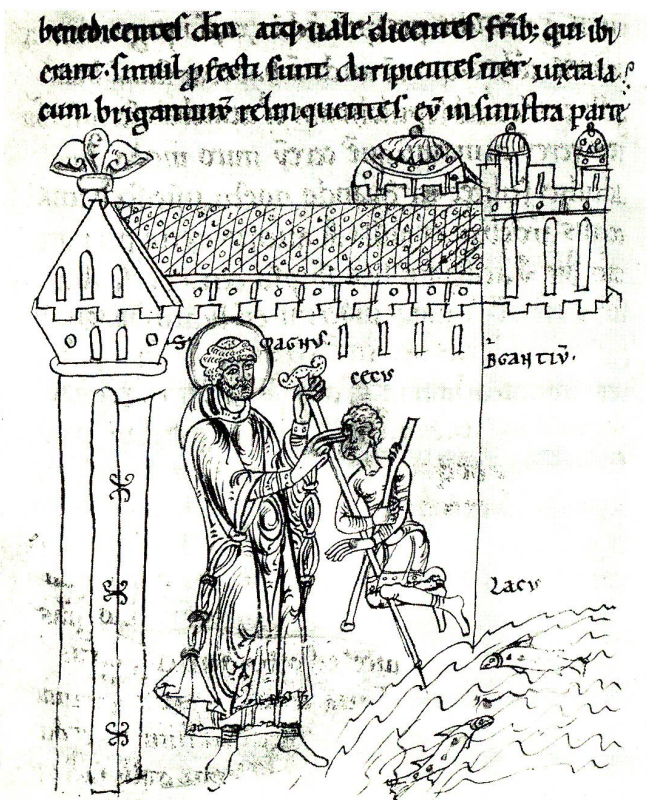 benedicentes dm̄ atq; uale dicentes fr̄ib; qui ibi
erant. simul ꝓfecti sunt. Arripientes iter iuxta la
cum brigantinū relinquentes eū in sinistra parte
S MAGNUS.
CECUS
BGANTIŪ.
LACU